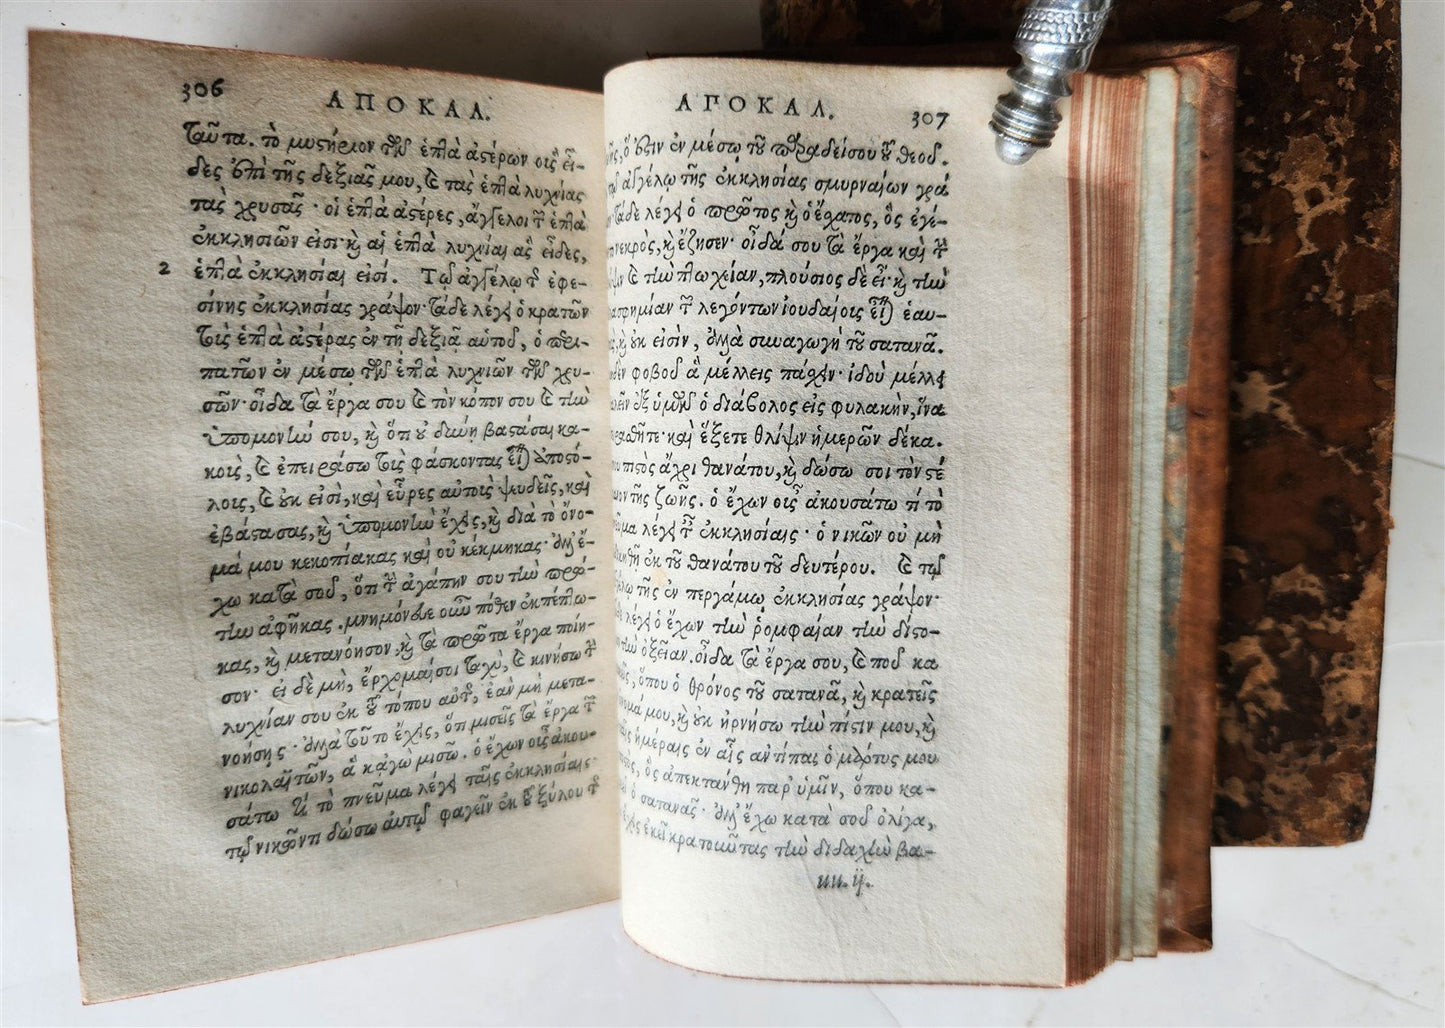 306
ΑΠΟΚΑΛ.
ταῦτα. τὸ μυστήριον τῶν ἑπτὰ ἀστέρων οὓς εἶ-
δες ἐπὶ τῆς δεξιᾶς μου, καὶ τὰς ἑπτὰ λυχνίας
τὰς χρυσᾶς· οἱ ἑπτὰ ἀστέρες, ἄγγελοι τῶν ἑπτὰ
ἐκκλησιῶν εἰσι· καὶ αἱ ἑπτὰ λυχνίαι ἃς εἶδες,
2 ἑπτὰ ἐκκλησίαι εἰσί. Τῷ ἀγγέλῳ τῆς ἐφε-
σίνης ἐκκλησίας γράψον· τάδε λέγει ὁ κρατῶν
τοὺς ἑπτὰ ἀστέρας ἐν τῇ δεξιᾷ αὑτοῦ, ὁ περι-
πατῶν ἐν μέσῳ τῶν ἑπτὰ λυχνιῶν τῶν χρυ-
σῶν· οἶδα τὰ ἔργα σου καὶ τὸν κόπον σου καὶ τὴν
ὑπομονήν σου, καὶ ὅτι οὐ δύνῃ βαστάσαι κα-
κοὺς, καὶ ἐπειράσω τοὺς φάσκοντας εἶναι ἀποστό-
λοις, καὶ οὐκ εἰσὶ, καὶ εὗρες αὐτοὺς ψευδεῖς, καὶ
ἐβάστασας, καὶ ὑπομονὴν ἔχεις, καὶ διὰ τὸ ὄνο-
μά μου κεκοπίακας καὶ οὐ κέκμηκας· ἀλλ' ἔ-
χω κατὰ σοῦ, ὅτι τὴν ἀγάπην σου τὴν πρώ-
την ἀφῆκας. μνημόνευε οὖν πόθεν ἐκπέπτω-
κας, καὶ μετανόησον, καὶ τὰ πρῶτα ἔργα ποίη-
σον· εἰ δὲ μὴ, ἔρχομαί σοι ταχὺ, καὶ κινήσω τὴν
λυχνίαν σου ἐκ τοῦ τόπου αὐτῆς, ἐὰν μὴ μετα-
νοήσῃς· ἀλλὰ τοῦτο ἔχεις, ὅτι μισεῖς τὰ ἔργα τῶν
νικολαϊτῶν, ἃ κἀγὼ μισῶ. ὁ ἔχων οὖς ἀκου-
σάτω τί τὸ πνεῦμα λέγει ταῖς ἐκκλησίαις·
τῷ νικῶντι δώσω αὐτῷ φαγεῖν ἐκ τοῦ ξύλου τῆς
ΑΠΟΚΑΛ.
307
ὅ ἐστιν ἐν μέσῳ τοῦ παραδείσου τοῦ θεοῦ.
ἀγγέλῳ τῆς ἐκκλησίας σμυρναίων γρά
τάδε λέγει ὁ πρῶτος καὶ ὁ ἔσχατος, ὃς ἐγέ-
νεκρὸς, καὶ ἔζησεν· οἶδά σου τὰ ἔργα καὶ τὴν
καὶ τὴν πτωχείαν, πλούσιος δὲ εἶ· καὶ τὴν
λεγόντων ἰουδαίοις εἶναι ἑαυ-
καὶ οὐκ εἰσὶν, ἀλλὰ συναγωγὴ τοῦ σατανᾶ.
φοβοῦ ἃ μέλλεις πάσχειν· ἰδοὺ μέλλει
ἐξ ὑμῶν ὁ διάβολος εἰς φυλακὴν, ἵνα
καὶ ἕξετε θλίψιν ἡμερῶν δέκα.
πιστὸς ἄχρι θανάτου, καὶ δώσω σοι τὸν στέ
τῆς ζωῆς. ὁ ἔχων οὖς ἀκουσάτω τί τὸ
λέγει ταῖς ἐκκλησίαις· ὁ νικῶν οὐ μὴ
ἐκ τοῦ θανάτου τοῦ δευτέρου. καὶ τῷ
τῆς ἐν περγάμῳ ἐκκλησίας γράψον·
λέγει ὁ ἔχων τὴν ῥομφαίαν τὴν δίστο-
τὴν ὀξεῖαν. οἶδα τὰ ἔργα σου, καὶ ποῦ κα
ὅπου ὁ θρόνος τοῦ σατανᾶ, καὶ κρατεῖς
μου, καὶ οὐκ ἠρνήσω τὴν πίστιν μου, καὶ
ἡμέραις ἐν αἷς ἀντίπας ὁ μάρτυς μου
ὃς ἀπεκτάνθη παρ' ὑμῖν, ὅπου κα-
ὁ σατανᾶς· ἀλλ' ἔχω κατὰ σοῦ ὀλίγα,
ἐκεῖ κρατοῦντας τὴν διδαχὴν βα-
uu.ij.